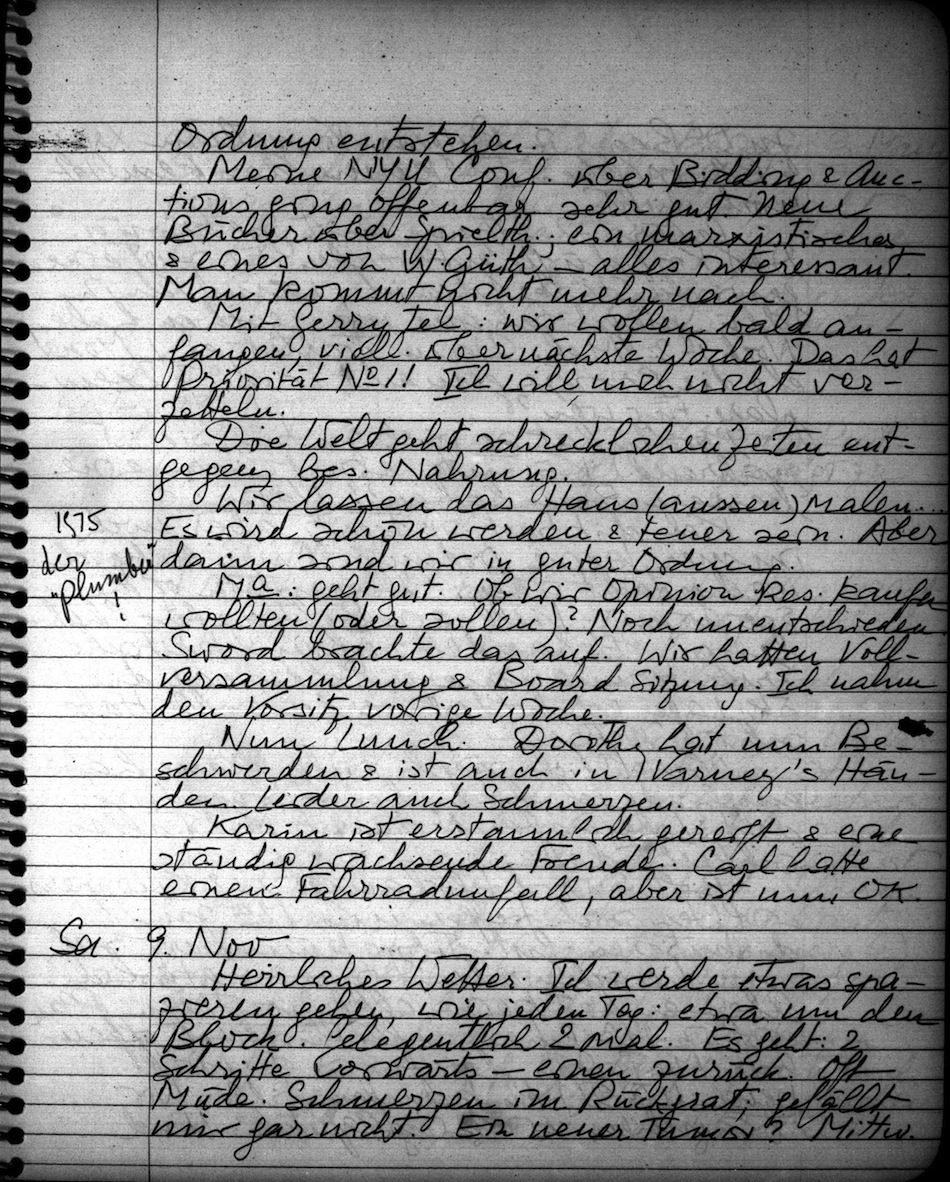 Ordnung entstehen.
Meine NYU Conf. über Bidding & Auc-
tions ging offenbar sehr gut. Neue
Bücher über Spielth.; ein marxistisches,
& eines von W Güth, — alles interessant.
Man kommt nicht mehr nach.
Mit Gerry Tel.: wir wollen bald an-
fangen, viell. übernächste Woche. Das hat
Priorität No 1! Ich will mich nicht ver-
zetteln.
Die Welt geht schrecklichen Zeiten ent-
gegen, bes. Nahrung.
Wir lassen das Haus (aussen) malen...
1975
Es wird schön werden & teuer sein. Aber
der
dann sind wir in guter Ordnung.
Ma: geht gut. Ob wir Opinion Res. kaufen
wollten (oder sollen)? Noch unentschieden
Sword brachte das auf. Wir hatten Voll-
versammlung & Board Sitzung. Ich nahm
den Vorsitz vorige Woche.
Nun Lunch. Dorothy hat nun Be-
schwerden & ist auch in Varney's Hän-
den. Leider auch Schmerzen.
Karin ist erstaunlich gereift & eine
ständig wachsende Freude. Carl hatte
einen Fahrradunfall, aber ist nun OK.
Sa. 9. Nov
Herrliches Wetter. Ich werde etwas spa-
zieren gehen, wie jeden Tag: etwa um den
Block. Gelegentlich 2 mal. Es geht: 2
Schritte vorwärts — einen zurück. Oft
Müde. Schmerzen im Rückgrat; gefällt
mir gar nicht. Ein neuer Tumor? Mittw.